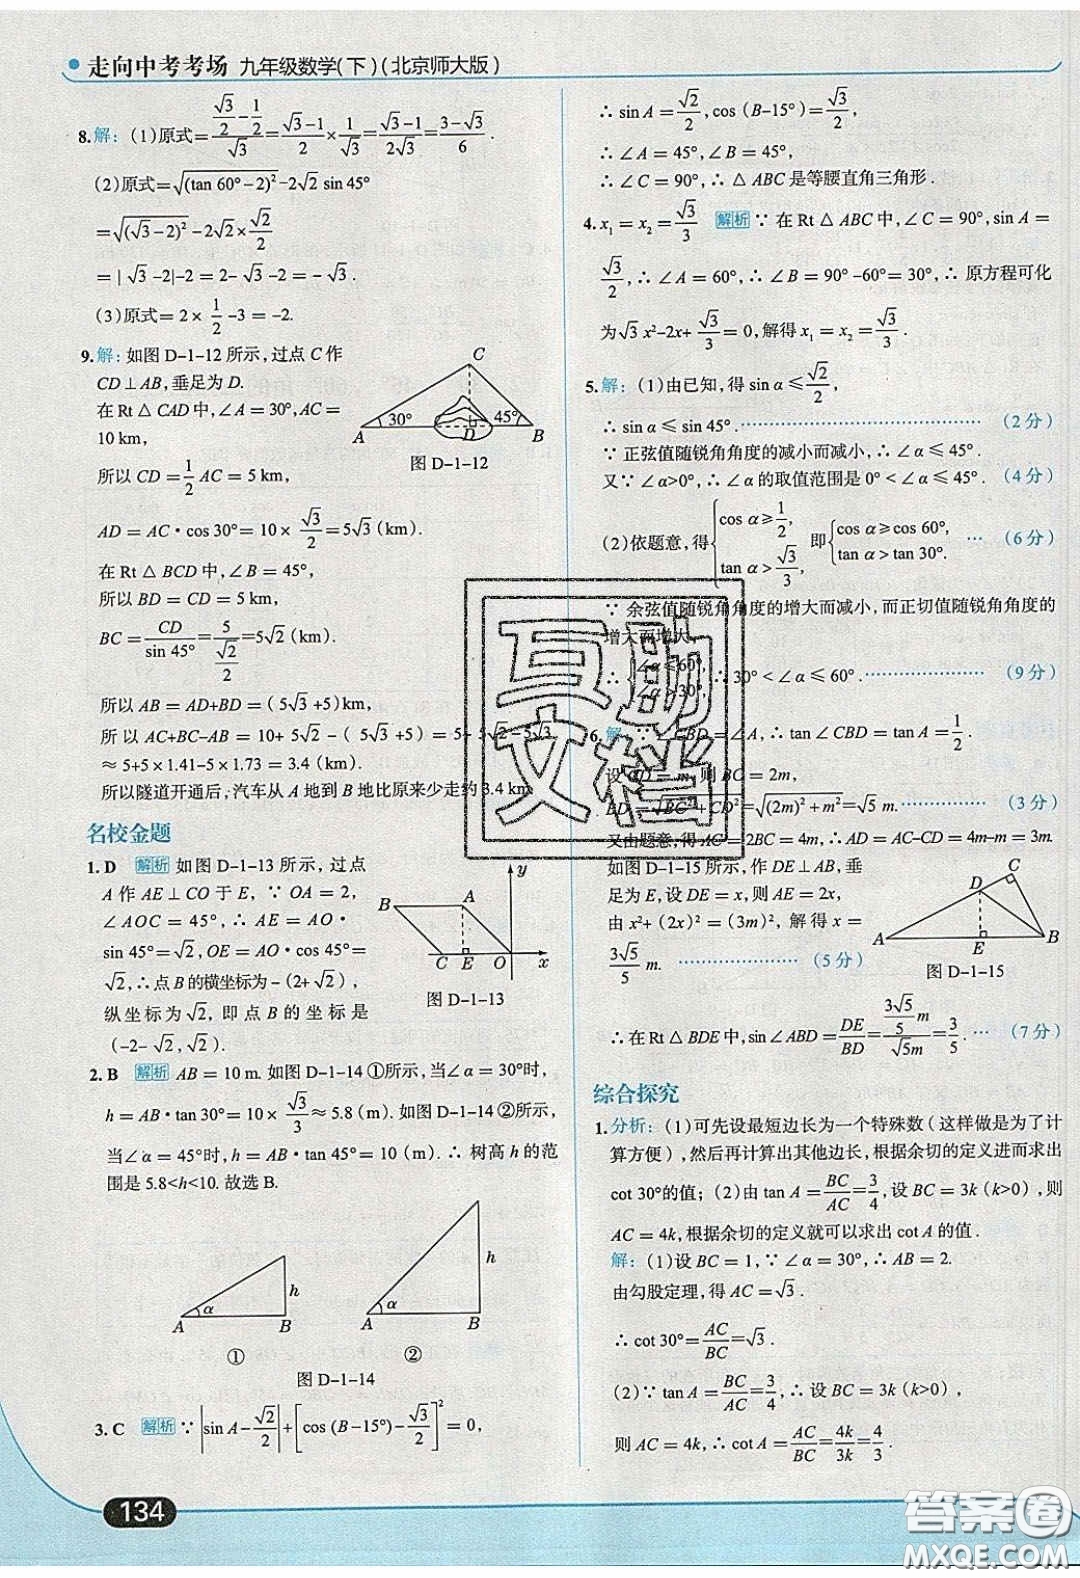 走向中考考场 九年级数学(下)(北京师大版)
8.解：(1)原式=(√3/2-1/2)/√3=(√3-1)/2×1/√3=(√3-1)/(2√3)=(3-√3)/6.
(2)原式=√((tan 60°-2)²)-2√2 sin 45°
=√((√3-2)²)-2√2×√2/2
=|√3-2|-2=2-√3-2=-√3.
(3)原式=2×1/2-3=-2.
9.解：如图D-1-12所示,过点C作
CD⊥AB,垂足为D.
在Rt△CAD中,∠A=30°,AC=
10 km,
所以CD=1/2 AC=5 km,
AD=AC·cos 30°=10×√3/2=5√3(km).
在Rt△BCD中,∠B=45°,
所以BD=CD=5 km,
BC=CD/sin 45°=5/(√2/2)=5√2(km).
所以AB=AD+BD=(5√3+5)km,
所以AC+BC-AB=10+5√2-(5√3+5)=5+5√2-5√3
≈5+5×1.41-5×1.73=3.4(km).
所以隧道开通后,汽车从A地到B地比原来少走约3.4 km.
C
30°
45°
A
D
B
图D-1-12
名校金题
1.D 解析 如图D-1-13所示,过点
A作AE⊥CO于E,∵OA=2,
∠AOC=45°,∴AE=AO·
sin 45°=√2,OE=AO·cos 45°=
√2,∴点B的横坐标为-(2+√2),
纵坐标为√2,即点B的坐标是
(-2-√2,√2).
y
B
A
C
E
O
x
图D-1-13
2.B 解析 AB=10 m.如图D-1-14①所示,当∠α=30°时,
h=AB·tan 30°=10×√3/3≈5.8(m).如图D-1-14②所示,
当∠α=45°时,h=AB·tan 45°=10(m).∴树高h的范
围是5.8<h<10.故选B.
h
α
A
B
①
h
α
A
B
②
图D-1-14
3.C 解析 ∵|sin A-√2/2|+[cos(B-15°)-√3/2]²=0,
∴sin A=√2/2,cos(B-15°)=√3/2,
∴∠A=45°,∠B=45°,
∴∠C=90°,∴△ABC是等腰直角三角形.
4.x₁=x₂=√3/3 解析 ∵在Rt△ABC中,∠C=90°,sin A=
√3/2,∴∠A=60°,∴∠B=90°-60°=30°,∴原方程可化
为√3 x²-2x+√3/3=0,解得x₁=x₂=√3/3.
5.解：(1)由已知,得sin α≤√2/2,
∴sin α≤sin 45°.……(2分)
∵正弦值随锐角角度的减小而减小,∴∠α≤45°.
又∵∠α>0°,∴∠α的取值范围是0°<∠α≤45°.(4分)
(2)依题意,得{cos α≥1/2,tan α>√3/3,即{cos α≥cos 60°,tan α>tan 30°.…(6分)
∵余弦值随锐角角度的增大而减小,而正切值随锐角角度的
增大而增大,
∴{∠α≤60°,∠α>30°,∴30°<∠α≤60°.……(9分)
6.解：∵∠CBD=∠A,∴tan∠CBD=tan A=1/2.
设CD=m,则BC=2m,
BD=√(BC²+CD²)=√((2m)²+m²)=√5 m.……(3分)
又由题意,得AC=2BC=4m,∴AD=AC-CD=4m-m=3m.
如图D-1-15所示,作DE⊥AB,垂
足为E,设DE=x,则AE=2x,
由x²+(2x)²=(3m)²,解得x=
3√5/5 m.……(5分)
C
D
A
E
B
图D-1-15
∴在Rt△BDE中,sin∠ABD=DE/BD=(3√5/5 m)/(√5m)=3/5.…(7分)
综合探究
1.分析：(1)可先设最短边长为一个特殊数(这样做是为了计
算方便),然后再计算出其他边长,根据余切的定义进而求出
cot 30°的值；(2)由tan A=BC/AC=3/4,设BC=3k(k>0),则
AC=4k,根据余切的定义就可以求出cot A的值.
解：(1)设BC=1,∵∠α=30°,∴AB=2.
由勾股定理,得AC=√3.
∴cot 30°=AC/BC=√3.
(2)∵tan A=BC/AC=3/4,∴设BC=3k(k>0),
则AC=4k,∴cot A=AC/BC=4k/3k=4/3.
互助
文档
134
答案圈
MXQE.COM